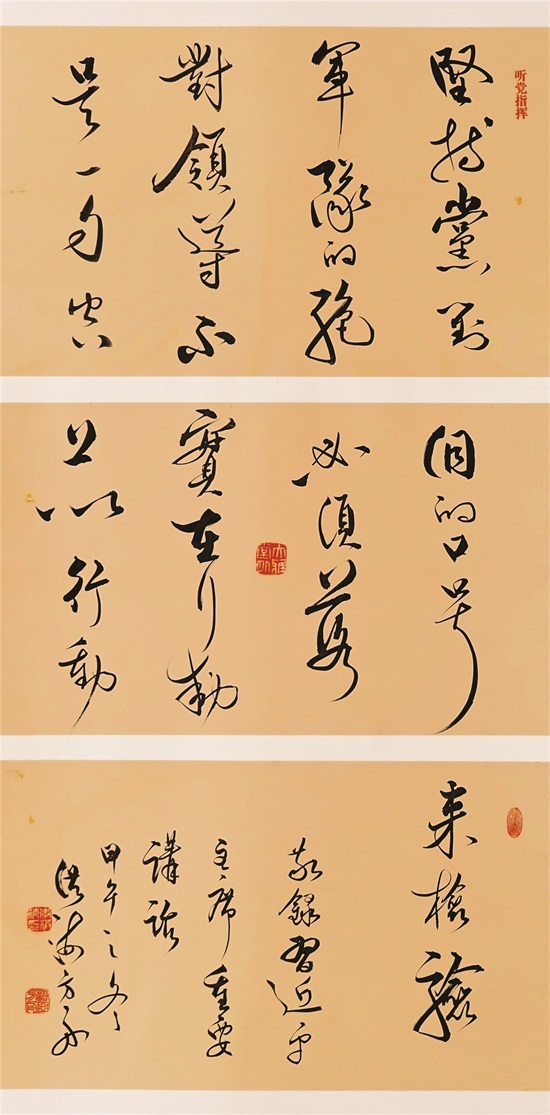 听党指挥
堅持黨對
軍隊的絶
對領導不
是一句空
洞的口号
必須落
實在行動
上以行動
来檢驗
敬錄習近平
主席重要
講話
甲午之冬